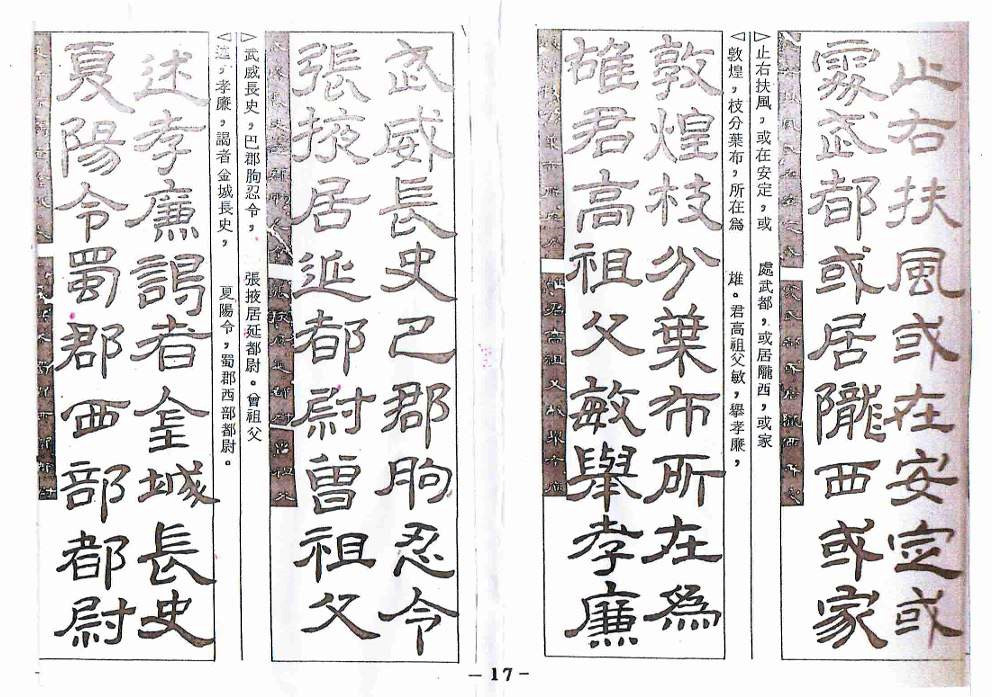 止右扶風或在安定或
處武都或居隴西或家
▷止右扶風，或在安定，或　處武都，或居隴西，或家
◁敦煌，枝分葉布，所在爲　雄。君高祖父敏，舉孝廉，
敦煌枝分葉布所在爲
雄君高祖父敏舉孝廉
武威長史巴郡朐忍令
張掖居延都尉曾祖父
▷武威長史，巴郡朐忍令，　張掖居延都尉。曾祖父
◁述，孝廉，謁者金城長史，　夏陽令，蜀郡西部都尉。
述孝廉謁者金城長史
夏陽令蜀郡西部都尉
－17－